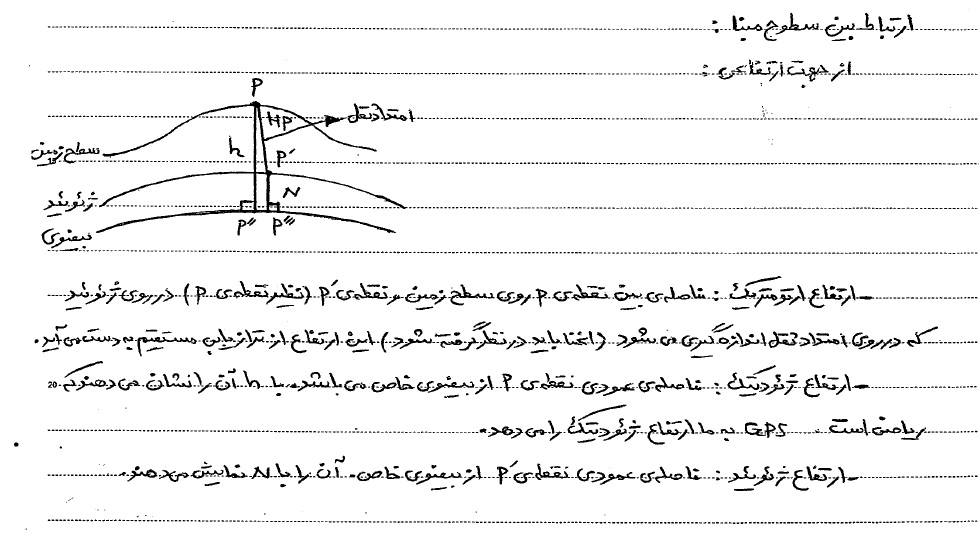 ارتباط بین سطوح مبنا :
از جهت ارتفاعی :
P
امتداد ثقل
Hp
h
P′
سطح زمین
N
ژئوئید
P″ P‴
بیضوی
- ارتفاع ارتومتریک : فاصله‌ی بین نقطه‌ی P روی سطح زمین و نقطه‌ی P′ (نظیر نقطه‌ی P) در روی ژئوئید
که در روی امتداد ثقل اندازه گیری می شود (انحنا باید در نظر گرفته شود) این ارتفاع از ترازیابی مستقیم به دست می آید.
- ارتفاع ژئودتیک : فاصله‌ی عمودی نقطه‌ی P از بیضوی خاص می باشد. با h آن را نشان می دهند که 20
ریاضی است. GPS به ما ارتفاع ژئودتیک را می دهد.
- ارتفاع ژئوئید : فاصله‌ی عمودی نقطه‌ی P′ از بیضوی خاص. آن را با N نمایش می دهند.